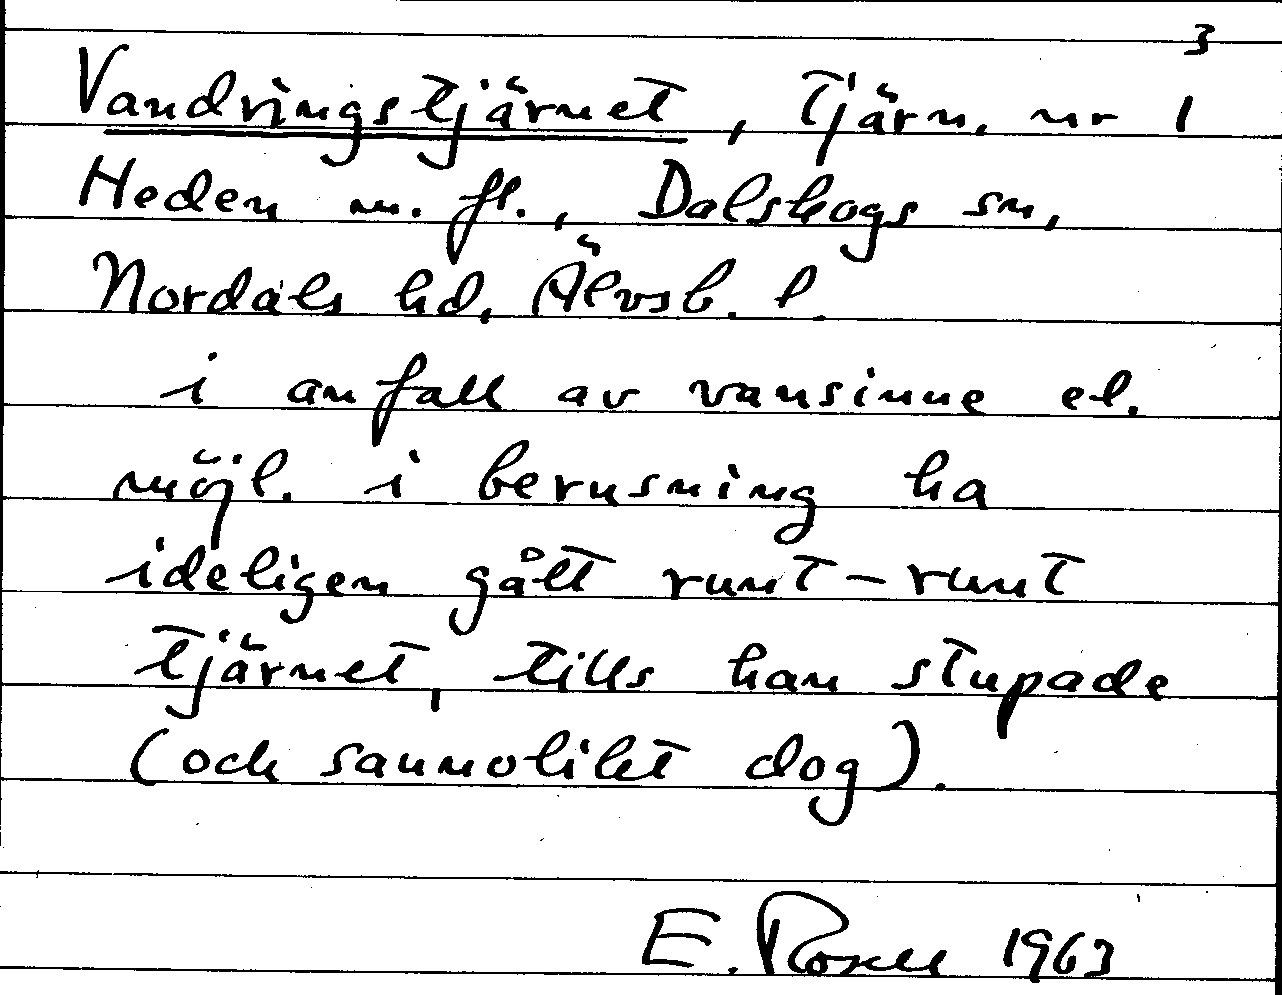 3
Vandringstjärnet, Tjärn, nr 1
Heden m. fl., Dalskogs sn,
Nordals hd, Älvsb. l.
i anfall av vansinne el.
möjl. i berusning ha
ideligen gått runt-runt
tjärnet, tills han stupade
(och sannolikt dog).
E. Rosell 1963